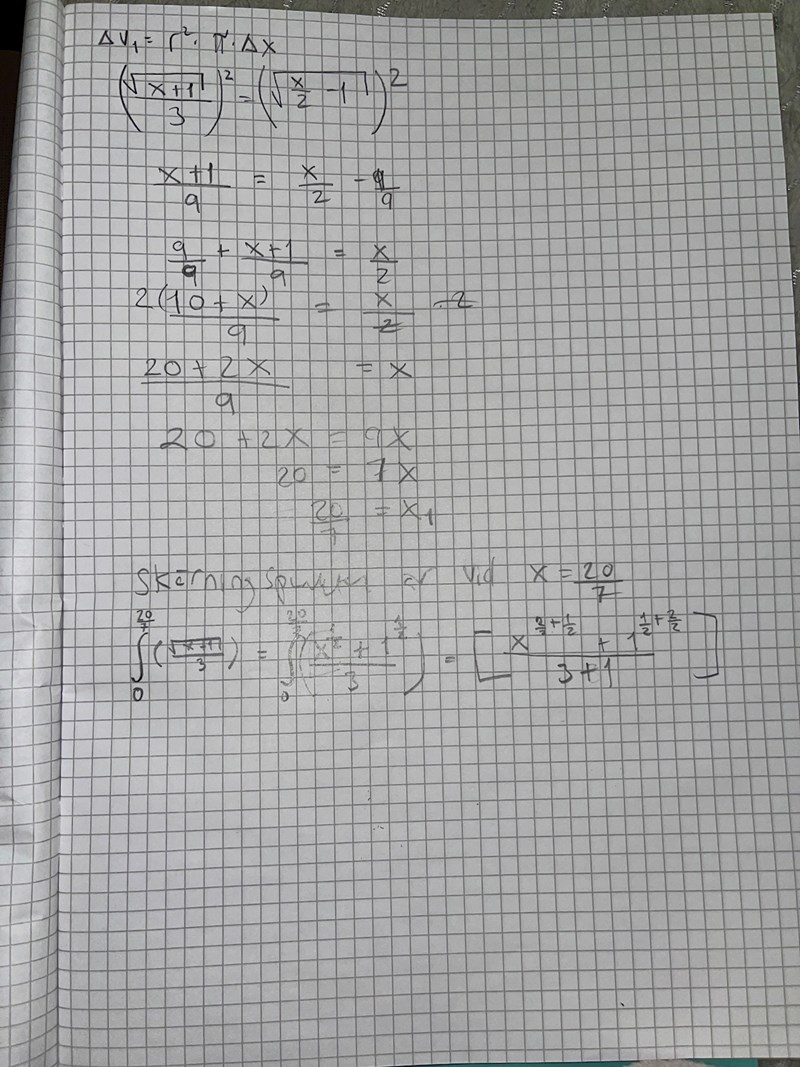 ΔV₁ = r² · π · Δx
(√(x+1)/3)² = (√(x/2 - 1))²
(x+1)/9 = x/2 - 9/9
9/9 + (x+1)/9 = x/2
2(10+x)/9 = x/2 · 2
(20+2x)/9 = x
20 + 2x = 9x
20 = 7x
20/7 = x₁
Skärningspunkten är vid x = 20/7
∫₀^(20/7) (√(x+1)/3) = ∫₀^(20/7) ((x^(1/2) + 1^(1/2))/3) = [(x^(2/2+1/2) + 1^(1/2+2/2))/(3+1)]